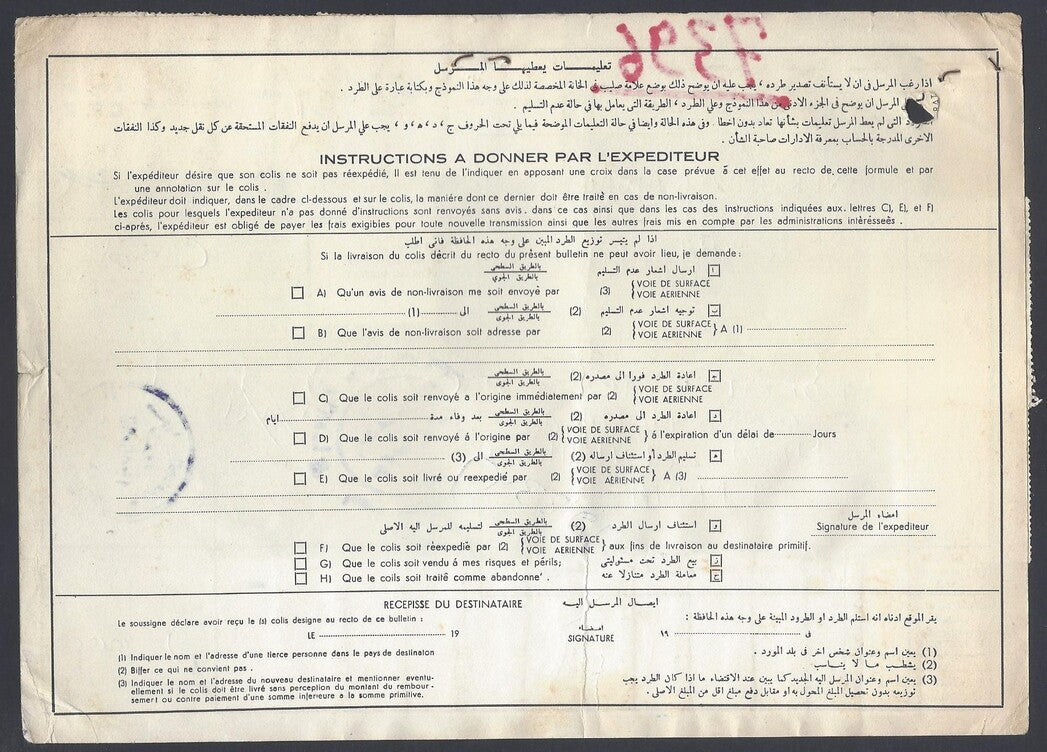 تعليمات يعطيها المرسل
اذا رغب المرسل فى ان لا يستأنف تصدير طرده ، يجب عليه ان يوضح ذلك بوضع علامة صليب فى الخانة المخصصة لذلك على وجه هذا النموذج وبكتابة عبارة على الطرد .
المرسل ان يوضح فى الجزء الادنى من هذا النموذج وعلي الطرد ، الطريقة التى يعامل بها في حالة عدم التسليم .
التى لم يعط المرسل تعليمات بشأنها تعاد بدون اخطار . وفى هذه الحالة وايضا في حالة التعليمات الموضحة فيما يلي تحت الحروف ج ، د ، ه ، و ، يجب علي المرسل ان يدفع النفقات المستحقة عن كل نقل جديد وكذا النفقات
الاخرى المدرجة بالحساب بمعرفة الادارات صاحبة الشأن .
INSTRUCTIONS A DONNER PAR L'EXPEDITEUR
Si l'expéditeur désire que son colis ne soit pas réexpédié, Il est tenu de l'indiquer en apposant une croix dans la case prévue à cet effet au recto de cette formule et par
une annotation sur le colis .
L'expéditeur doit indiquer, dans le cadre ci-dessous et sur le colis, la manière dont ce dernier doit être traité en cas de non-livraison.
Les colis pour lesquels l'expéditeur n'a pas donné d'instructions sont renvoyés sans avis . dans ce cas ainsi que dans les cas des instructions indiquées aux. lettres C), E), et F)
ci-après, l'expéditeur est obligé de payer les frais exigibles pour toute nouvelle transmission ainsi que les autres frais mis en compte par les administrations intérésseés .
اذا لم يتيسر توزيع الطرد المبين على وجه هذه الحافظة فانى اطلب
Si la livraison du colis décrit du recto du présent bulletin ne peut avoir lieu, je demande :
ا ارسال اشعار عدم التسليم بالطريق السطحى بالطريق الجوي
A) Qu'un avis de non-livraison me soit envoyé par (3) { VOIE DE SURFACE VOIE AERIENNE
ب توجيه اشعار عدم التسليم (2) بالطريق السطحى بالطريق الجوى الى (1)
B) Que l'avis de non-livraison soit adresse par (2) { VOIE DE SURFACE VOIE AERIENNE } A (1)
ج اعادة الطرد فورا الى مصدره (2) بالطريق السطحى بالطريق الجوى
C) Que le colis soit renvoyé a l'origine immédiatement par (2) { VOIE DE SURFACE VOIE AERIENNE
د اعادة الطرد الى مصدره (2) بالطريق السطحى بالطريق الجوى بعد وفاء مدة ايام
D) Que le colis soit renvoyé á l'origine par (2) { VOIE DE SURFACE VOIE AERIENNE } á l'expiration d'un délai de Jours
ه تسليم الطرد أو استئناف ارساله (2) بالطريق السطحى بالطريق الجوى الى (3)
E) Que le colis soit livré ou reexpedié par (2) { VOIE DE SURFACE VOIE AÉRIENNE } A (3)
امضاء المرسل
Signature de l'expediteur
و استئناف ارسال الطرد (2) بالطريق السطحى بالطريق الجوى لتسليمه للمرسل اليه الاصلى
F) Que le colis soit réexpedié par (2) { VOIE DE SURFACE VOIE AERIENNE } aux fins de livraison au destinataire primitif.
ز بيع الطرد تحت مسئوليتى
G) Que le colis soit vendu á mes risques et périls;
ح معاملة الطرد متنازلا عنه
H) Que le coils soit traité comme abandonne' .
RECEPISSE DU DESTINATAIRE
ايصال المرسل اليه
Le soussigne déclare avoir reçu le (s) colis designe au recto de ce bulletin :
يقر الموقع ادناه انه استلم الطرد او الطرود المبينة على وجه هذه الحافظة :
LE 19
امضاء
SIGNATURE
فى ١٩
(1) Indiquer le nom et l'adresse d'une tierce personne dans le pays de destinaton
(2) Biffer ce qui ne convient pas .
(3) Indiquer le nom et l'adresse du nouveau destinataire et mentionner eventu-
ellement si le colis doit être livré sans perception du montant du rembour-
sement ou contre paiement d'une somme inferieure a la somme primitive.
(1) يعين اسم وعنوان شخص آخر فى بلد المورد .
(2) يشطب ما لا يناسب .
(3) يعين اسم وعنوان المرسل اليه الجديد كما يبين عند الاقتضاء ما اذا كان الطرد يجب
توزيعه بدون تحصيل المبلغ المحول به او مقابل دفع مبلغ اقل من المبلغ الاصلى .